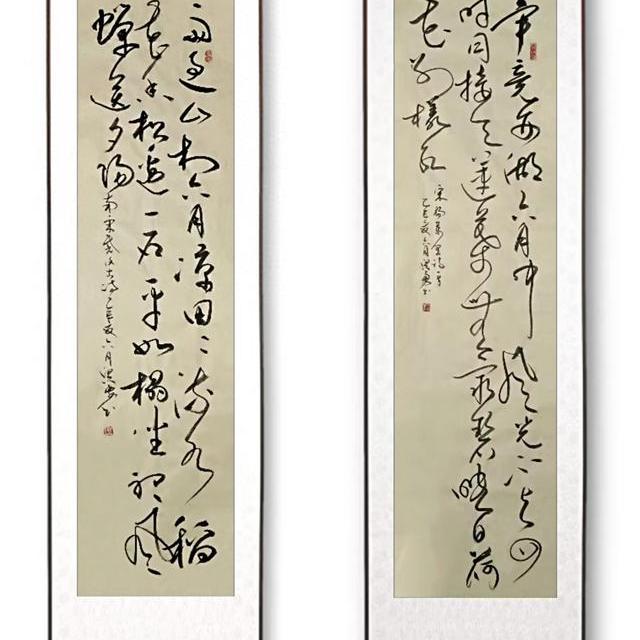 毕竟西湖六月中风光不与四
时同接天莲葉无穷碧映日荷
花别样红
宋杨万里诗一首
乙巳夏六月
雨过山村六月凉田田流水稻
花香松边一石平如榻坐听风
蝉送夕陽
南宋
乙巳夏六月